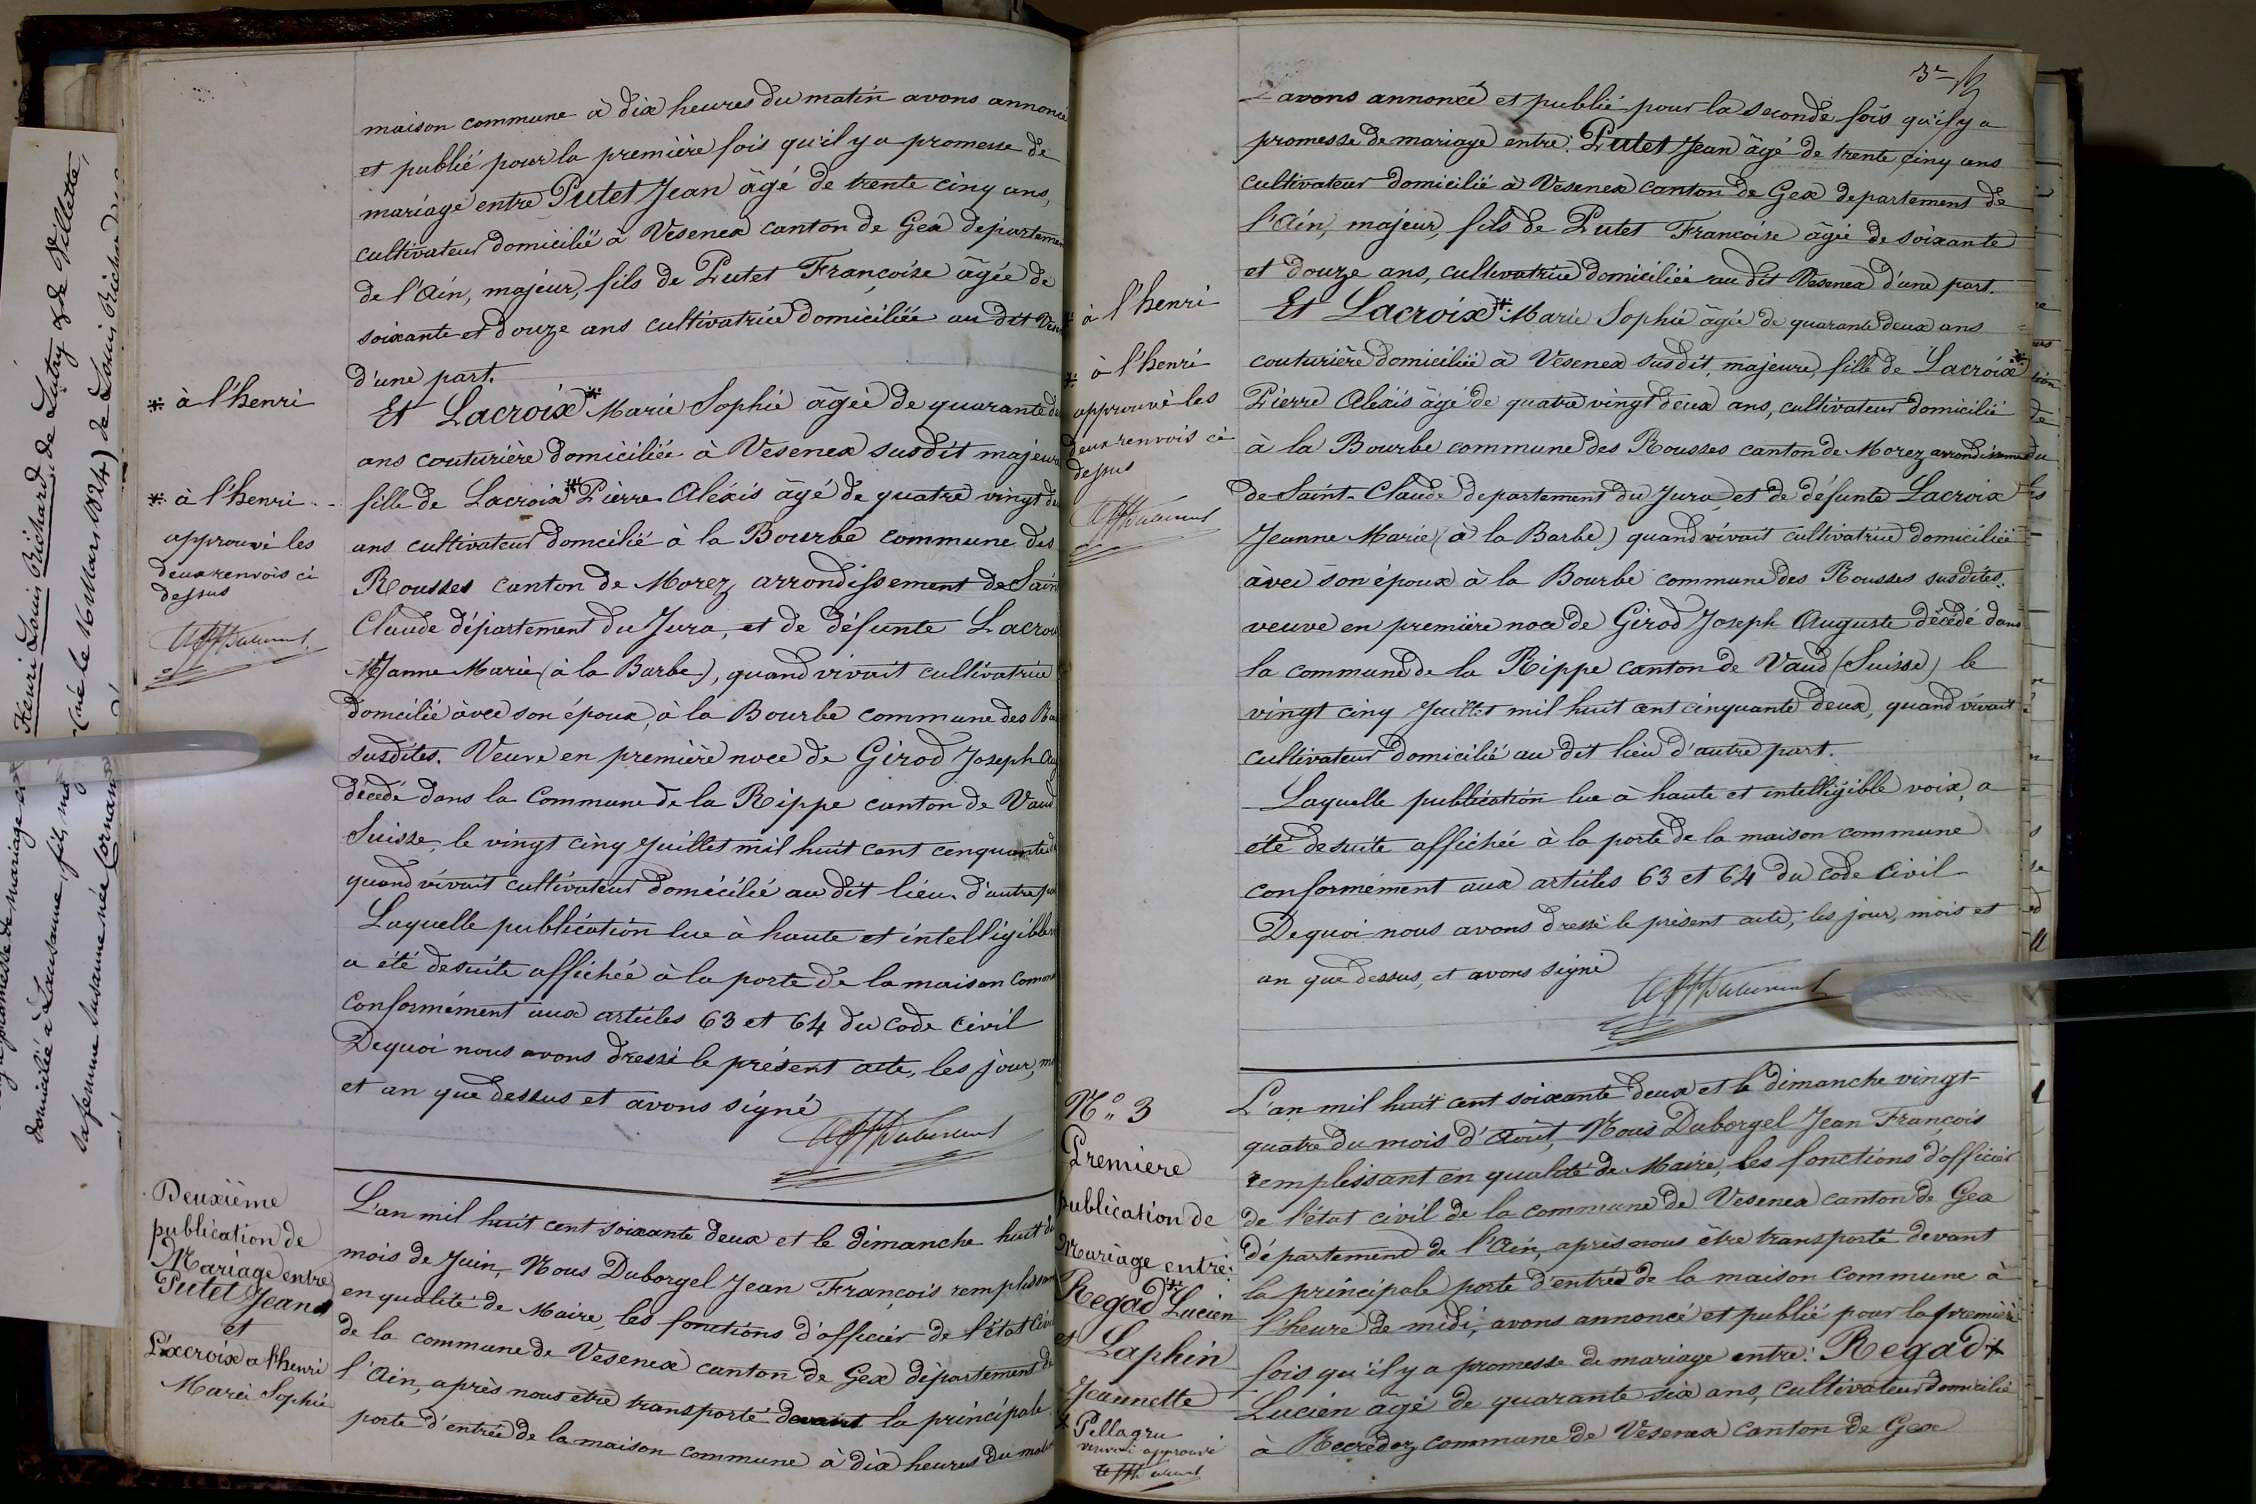 maison commune à dix heures du matin avons annoncé
et publié pour la première fois qu'il y a promesse de
mariage entre Putet Jean âgé de trente cinq ans,
cultivateur domicilié à Vesenex canton de Gex départemen
de l'Ain, majeur, fils de Putet Françoise âgée de
soixante et douze ans cultivatrice domiciliée au dit Vese
d'une part.
Et Lacroix* Marie Sophie âgée de quarante de
ans couturière domiciliée à Vesenex susdit majeure
fille de Lacroix* Pierre Aléxis âgé de quatre vingt de
ans cultivateur domcilié à la Bourbe commune des
Rousses canton de Morez arrondissement de Sain
Claude département du Jura, et de défunte Lacroi
Janne Marie (à la Barbe), quand vivait cultivatrice
domcilié avec son époux, à la Bourbe commune des Rou
susdites. Veuve en première noce de Girod Joseph Au
décédé dans la Commune de la Rippe canton de Vaud
Suisse, le vingt cinq Juillet mil huit cent cenquante d
quand vivait cultivateur domicilié au dit lieu d'autre pa
Laquelle publication lue à haute et intelligible v
a été desuite affichée à la porte de la maison comm
conformément aux articles 63 et 64 du code civil
Dequoi nous avons dressé le présent acte, les jour, m
et an que dessus et avons signé
* à l'henri
* à l'henri
approuvé les
deux renvois ci
dessus
Deuxième
publication de
Mariage entre
Putet Jean
et
Lacroix a l'henri
Marie Sophie
L'an mil huit cent soixante deux et le dimanche huit du
mois de Juin, Nous Duborgel Jean François remplissan
en qualité de Maire, les fonctions d'officier de l'état Civi
de la commune de Vesenex canton de Gex département de
l'Ain, après nous être transporté devant la principale
porte d'entrée de la maison commune à dix heures du mat
Henri Louis Richard de Lutry & de Villette,
domicilié à Lausanne, fils, ma
(né le 16 Mars 1824) de Louis Richard
sa femme Susanne née Cornand
promesse de mariage en
3e
avons annoncé et publié pour la seconde fois qu'il y a
promesse de mariage entre: Putet Jean âgé de trente cinq ans
cultivateur domicilié à Vesenex canton de Gex departement de
l'Ain, majeur, fils de Putet Françoise âgée de soixante
et douze ans, cultivatrice domiciliée au dit Vesenex d'une part.
Et Lacroix* Marie Sophie âgée de quarante deux ans
couturière domiciliée à Vesenex susdit, majeure, fille de Lacroix*
Pierre Aléxis âgé de quatre vingt deux ans, cultivateur domicilié
à la Bourbe commune des Rousses canton de Morez arrondissement
de Saint-Claude departement du Jura, et de défunte Lacroix
Jeanne Marie (à la Barbe) quand vivait cultivatrice domiciliée
avec son époux à la Bourbe commune des Rousses susdites.
veuve en première noce de Girod Joseph Auguste décédé dans
la commune de la Rippe canton de Vaud (Suisse) le
vingt cinq Juillet mil huit cent cinquante deux, quand vivait
cultivateur domicilié au dit lieu d'autre part.
Laquelle publication lue à haute et intelligible voix, a
été desuite affichée à la porte de la maison commune
conformément aux articles 63 et 64 du code civil
Dequoi nous avons dressé le présent acte, les jour, mois et
an que dessus, et avons signé
* à l'henri
* à l'henri
approuvé les
deux renvois ci
dessus
No. 3
Premiere
publication de
Mariage entre:
Regad* Lucien
et Laphin
Jeannette
x Pellagru
renvoi approuvé
L'an mil huit cent soixante deux et le dimanche vingt-
quatre du mois d'Août, Nous Duborgel Jean François
remplissant en qualité de Maire, les fonctions d'officier
de l'état civil de la commune de Vesenex canton de Gex
département de l'Ain, après nous être transporté devant
la principale porte d'entrée de la maison commune à
l'heure de midi, avons annoncé et publié pour la première
fois qu'il y a promesse de mariage entre: Regad x
Lucien âgé de quarante six ans, cultivateur domicilié
à Recredoz commune de Vesenex canton de Gex